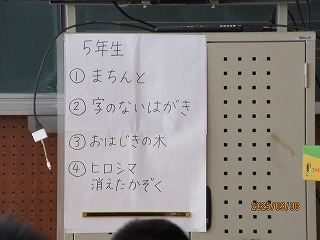 5年生
① まちんと
② 字のないはがき
③ おはじきの木
④ ヒロシマ
消えたかぞく
2025/09/08